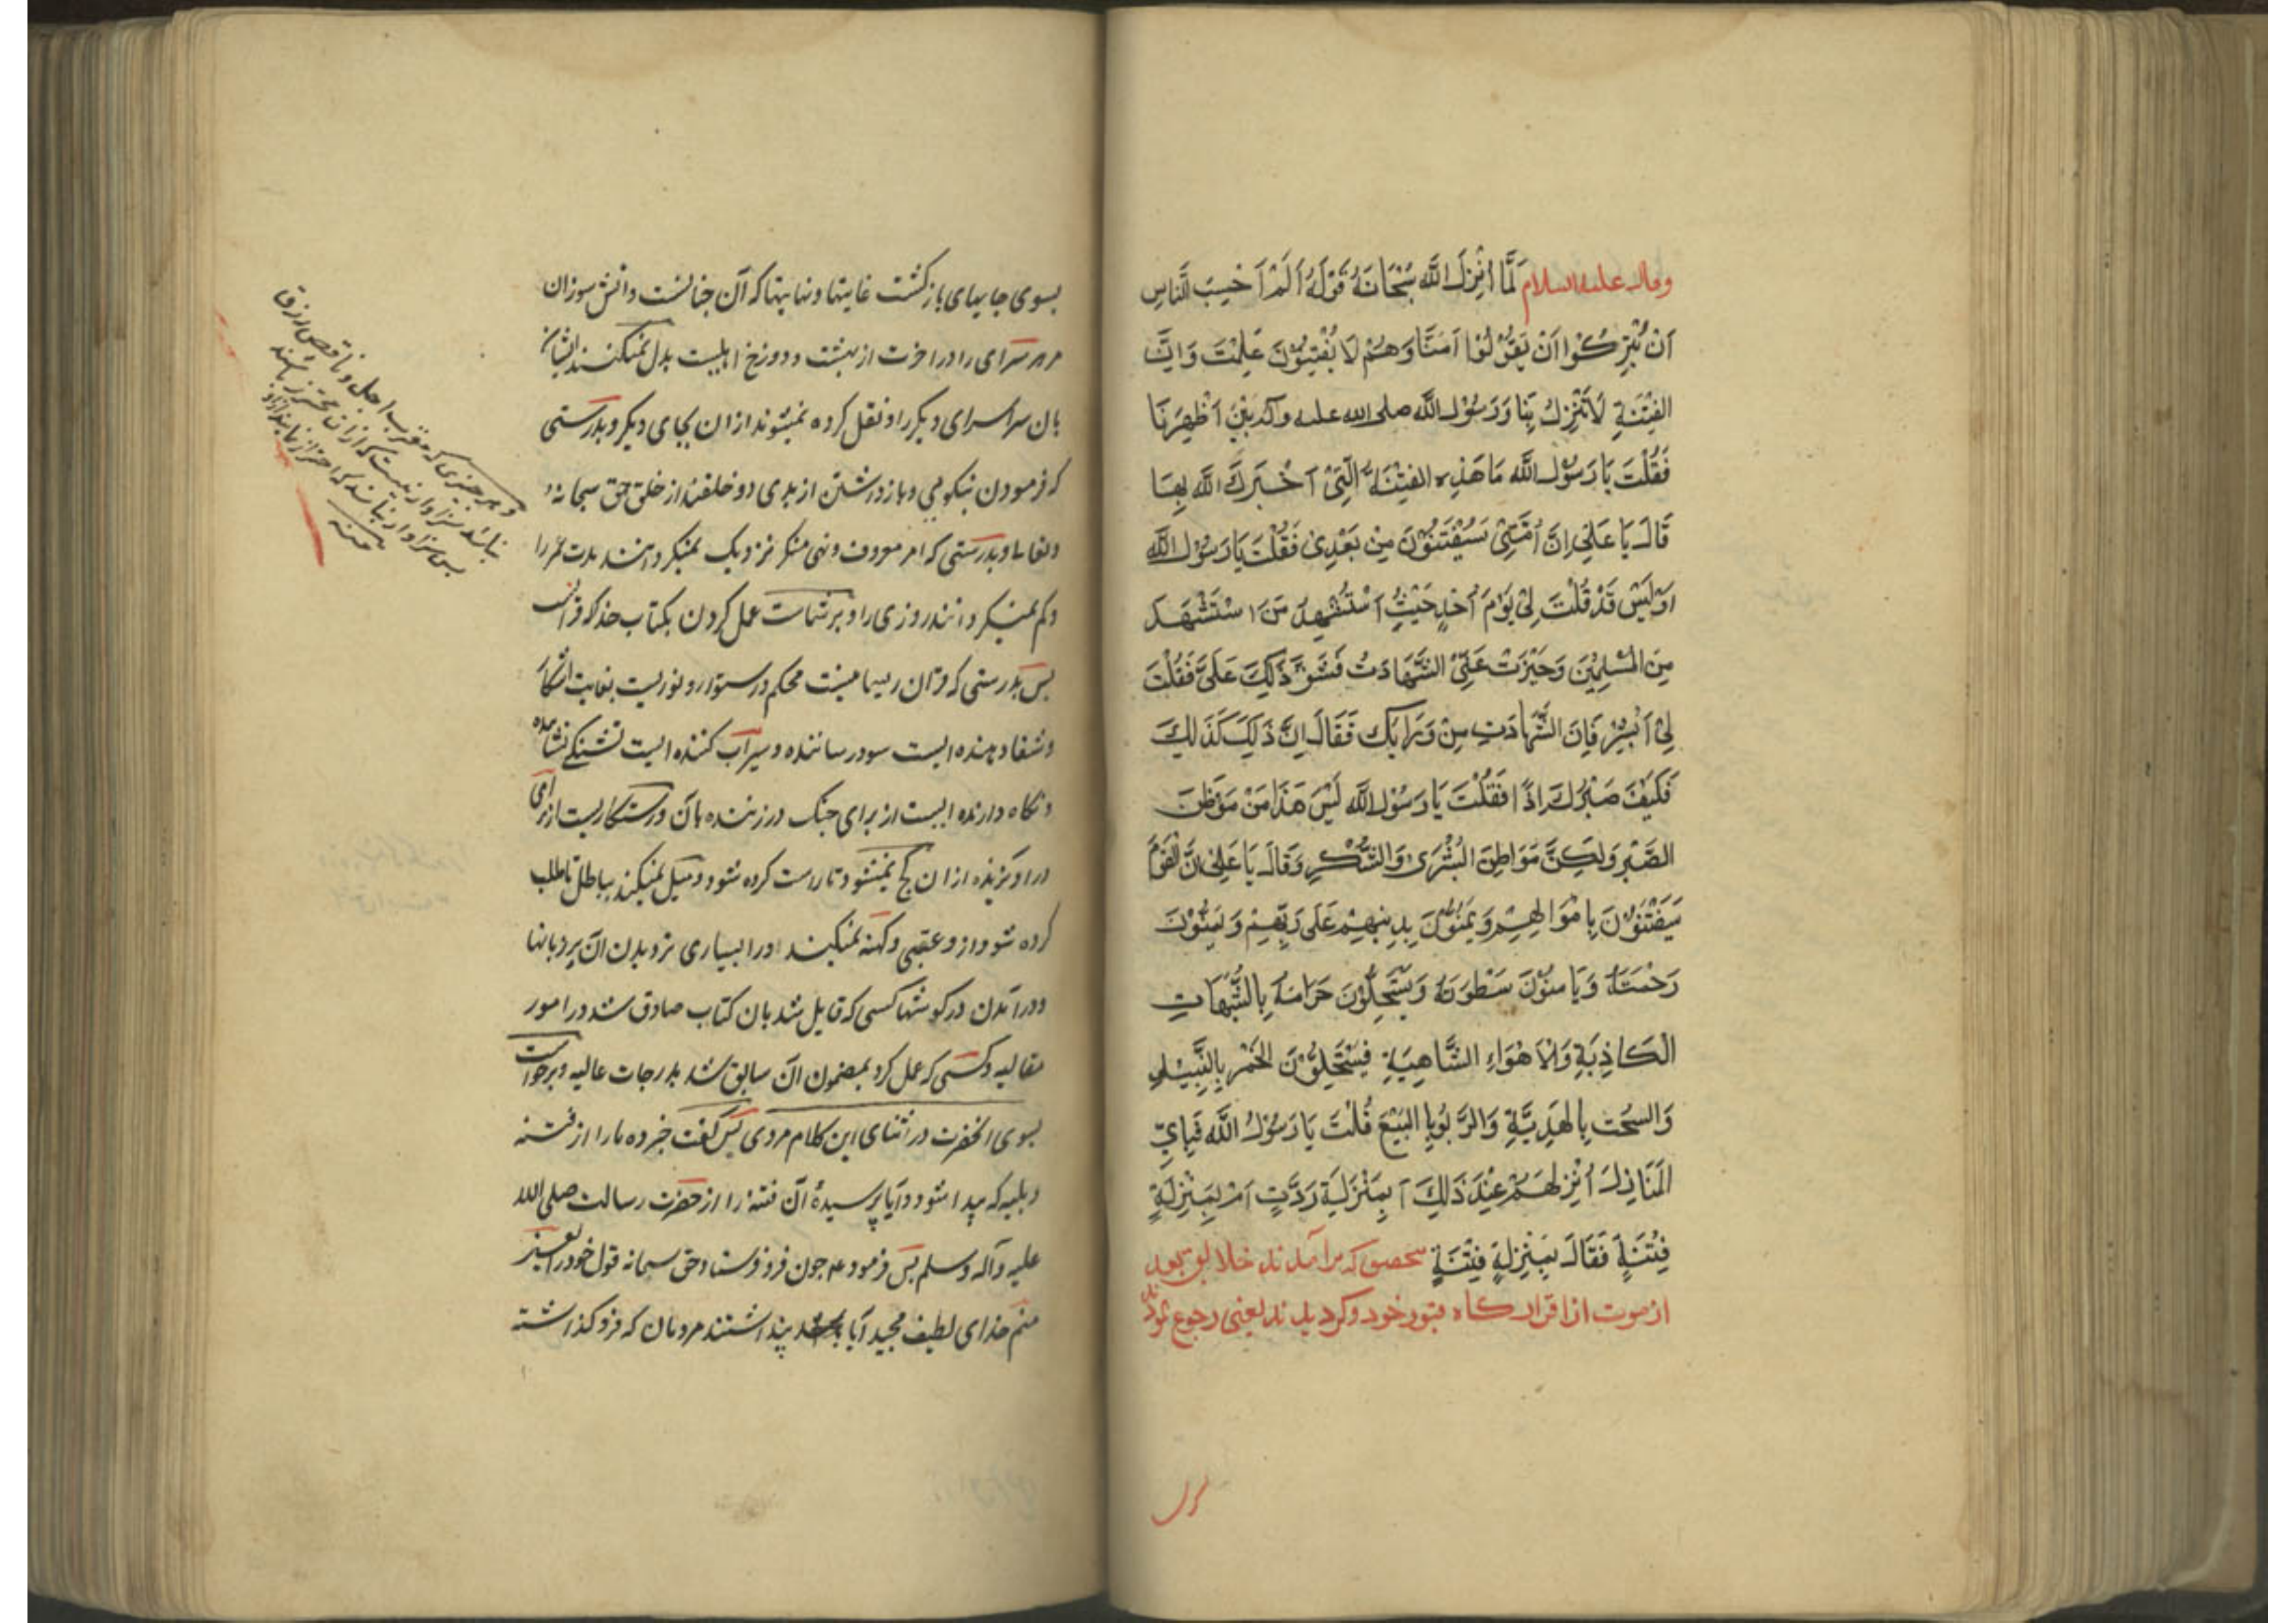 وقال علیه السلام لَمَّا اَنْزَلَ اللَّه سُبْحَانَهُ قَوْلَهُ اَلَمْ اَحَسِبَ النَّاسِ
اَنْ يُتْرَكُوْا اَنْ يَقُوْلُوْا آمَنَّا وَهُمْ لَا يُفْتِنُوْنَ عَلِمْتَ وَانَّ
الفِتْنَةِ لَا تَنْزِلُ بِنَا وَرَسُوْلُ اللَّه صلی الله علیه وآله بَيْنَ اَظْهِرَنَا
فَقُلْتَ يَا رَسُوْلَ اللَّه مَا هَذِهِ الفِتْنَةُ الَّتِیْ اَخْبَرَكَ اللَّه بِهَا
قَالَ يَا عَلِیْ اِنَّ اُمَّتِیْ سَيُفْتَنُوْنَ مِنْ بَعْدِیْ فَقُلْتَ يَا رَسُوْلَ اللَّه
اَوَلَيْسَ قَدْ قُلْتَ لِیْ يَوْمَ اُحُدٍ حَيْثُ اُسْتُشْهِدَ مَنِ اسْتَشْهَدَ
مِنَ الْمُسْلِمِيْنَ وَحَيْزَتْ عَلَیَّ الشَّهَادَتُ فَشَقَّ ذَلِكَ عَلَیَّ فَقُلْتَ
لِیْ اَبْشِرْ فَاِنَ الشَّهَادَتِ مِنْ وَرَايَك فَقَالَ اِنَّ ذَلِكَ كَذَلِكَ
فَكَيْفَ صَبْرُكَ اِذًا فَقُلْتَ يَا رَسُوْلَ اللَّه لَيْسَ هَذَا مَنْ مَوَطِنَ
الصَّبْرِ وَلَكِنَّ مَوَاطِنَ البُشْرَی وَالشُّكْرِ وَقَالَ يَا عَلِیْ اِنَّ الْقَوْمَ
سَيَفْتَنُوْنَ بِاَمْوَالِهِمْ وَيَمَنُّوْنَ بِدِيْنِهِمْ عَلَی رَبِّهِمْ وَيَتَمَنُّوْنَ
رَحْمَتَهُ وَيَامَنُوْنَ سَطْوَتَهُ وَيَسْتَحِلُّوْنَ حَرَامَهُ بِالشُّبُهَاتِ
الْكَاذِبَةِ وَالْاَهْوَاءِ السَّاهِيَةِ فَيَسْتَحِلُّوْنَ الخَمْرَ بِالنَّبِيْذِ
وَالسُحَتَ بِالهَدِيَّةِ وَالرَّبوا بِالبَيْعَ قُلْتَ يَا رَسُوْلُ اللَّه فَبِاَيِّ
المَنَازِلِ اُنْزِلُهُمْ عِنْدَ ذَلِكَ اَبِمَنْزِلَةِ رَدَّتٍ اَمْ بِمَنْزِلَةِ
فِتْنَةٍ فَقَالَ بِمَنْزِلَةِ فِتْنَةٍ بتحقیق که برآمدند خلایق بعد
از موت از قرارگاه قبور خود و کردیدند یعنی رجوع نمودند
بسوی جایهای بازکشت غایتها و نهایتها که آن جنانست و آتش سوزان
مر هر سرای را در اخرت از بهشت و دوزخ اهلیست بدل نمیکنند ایشان
بان سرا سرای دیکر را و نقل کرده نمیشوند از ان بجای دیکر و بدرستی
که فرمودن نیکویی و بازداشتن از بدی دو خلقند از خلق حق سبحانه و
وتعالی و بدرستی که امر معروف و نهی منکر نزدیک نمیکردانند مدت عمر را
و کم نمیکردانند روزی را و بر شماست عمل کردن بکتاب خدا که قرانست
بس بدرستی که قرآن ریسمانیست محکم و استوار و نوریست بغایت اشکار
و شفا دهنده ایست سود رساننده و سیراب کننده ایست تشنکی نشاننده
و نگاه دارنده ایست از برای چنک در زننده بآن و رستکاریست از برای
در اویزنده از ان کج نمیشود تا راست کرده شود و میل نمیکند بباطل تا طلب
کرده شود از و عقبی و کهنه نمیکند او را بسیاری تردید آن بر زبانها
و درآمدن در کوشها کسی که قایل شد بان کتاب صادق شد در امور
مقالیه و کسی که عمل کرد بمضمون آن سابق شد بدرجات عالیه و برخواست
بسوی انحضرت در اثنای این کلام مردی بس کفت خبر ده ما را از فتنه
و بلیه که پیدا شود و آیا پرسیدهٔ آن فتنه را از حضرت رسالت صلی الله
علیه و آله و سلم بس فرمود که چون فرو فرستاد حق سبحانه قول خود را یعنی
منم خدای لطیف مجید آیا پنداشتند مردمان که فرو کذاشته
و هر چیزی که مقرب اجل و ناقص رزق
نباشد سزاوار نیست که از ان محترز باشند
بس سزاوار نباشد که احتراز نمایند از او
منه